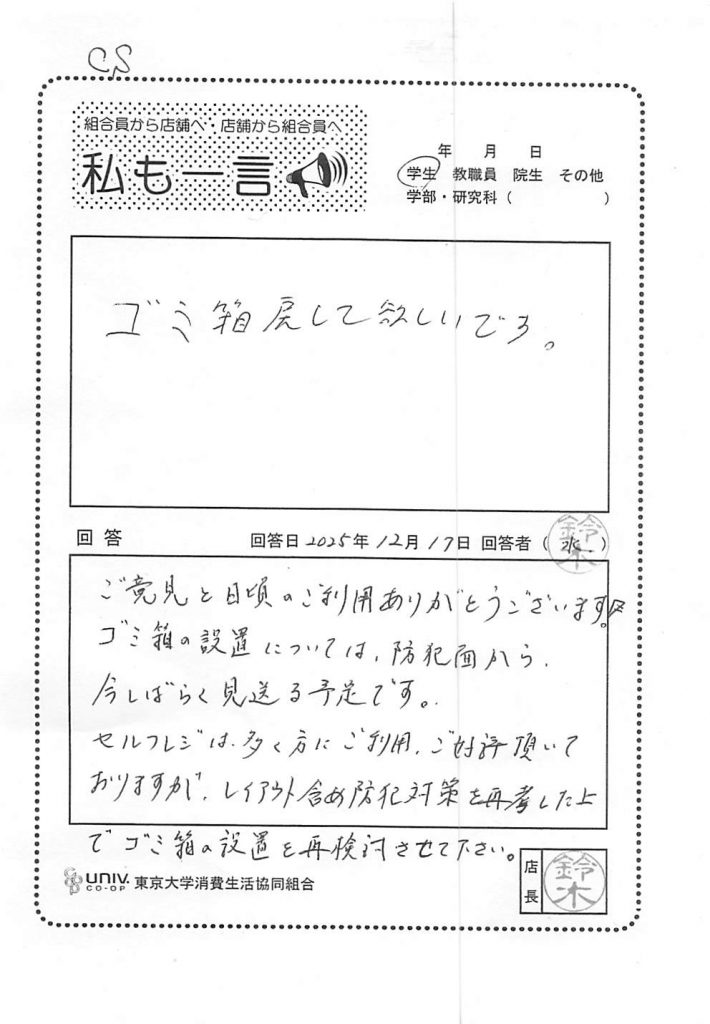 CS
組合員から店舗へ・店舗から組合員へ
私も一言
年 月 日
学生 教職員 院生 その他
学部・研究科（ ）
ゴミ箱戻して欲しいです。
回答 回答日 2025年 12月 17日 回答者（水）
鈴木
ご意見と日頃のご利用ありがとうございます。
ゴミ箱の設置については、防犯面から、
今しばらく見送る予定です。
セルフレジは、多く方にご利用、ご好評頂いて
おりますが、レイアウト含め防犯対策を再考した上
でゴミ箱の設置を再検討させて下さい。
UNIV. CO-OP 東京大学消費生活協同組合
店長 鈴木